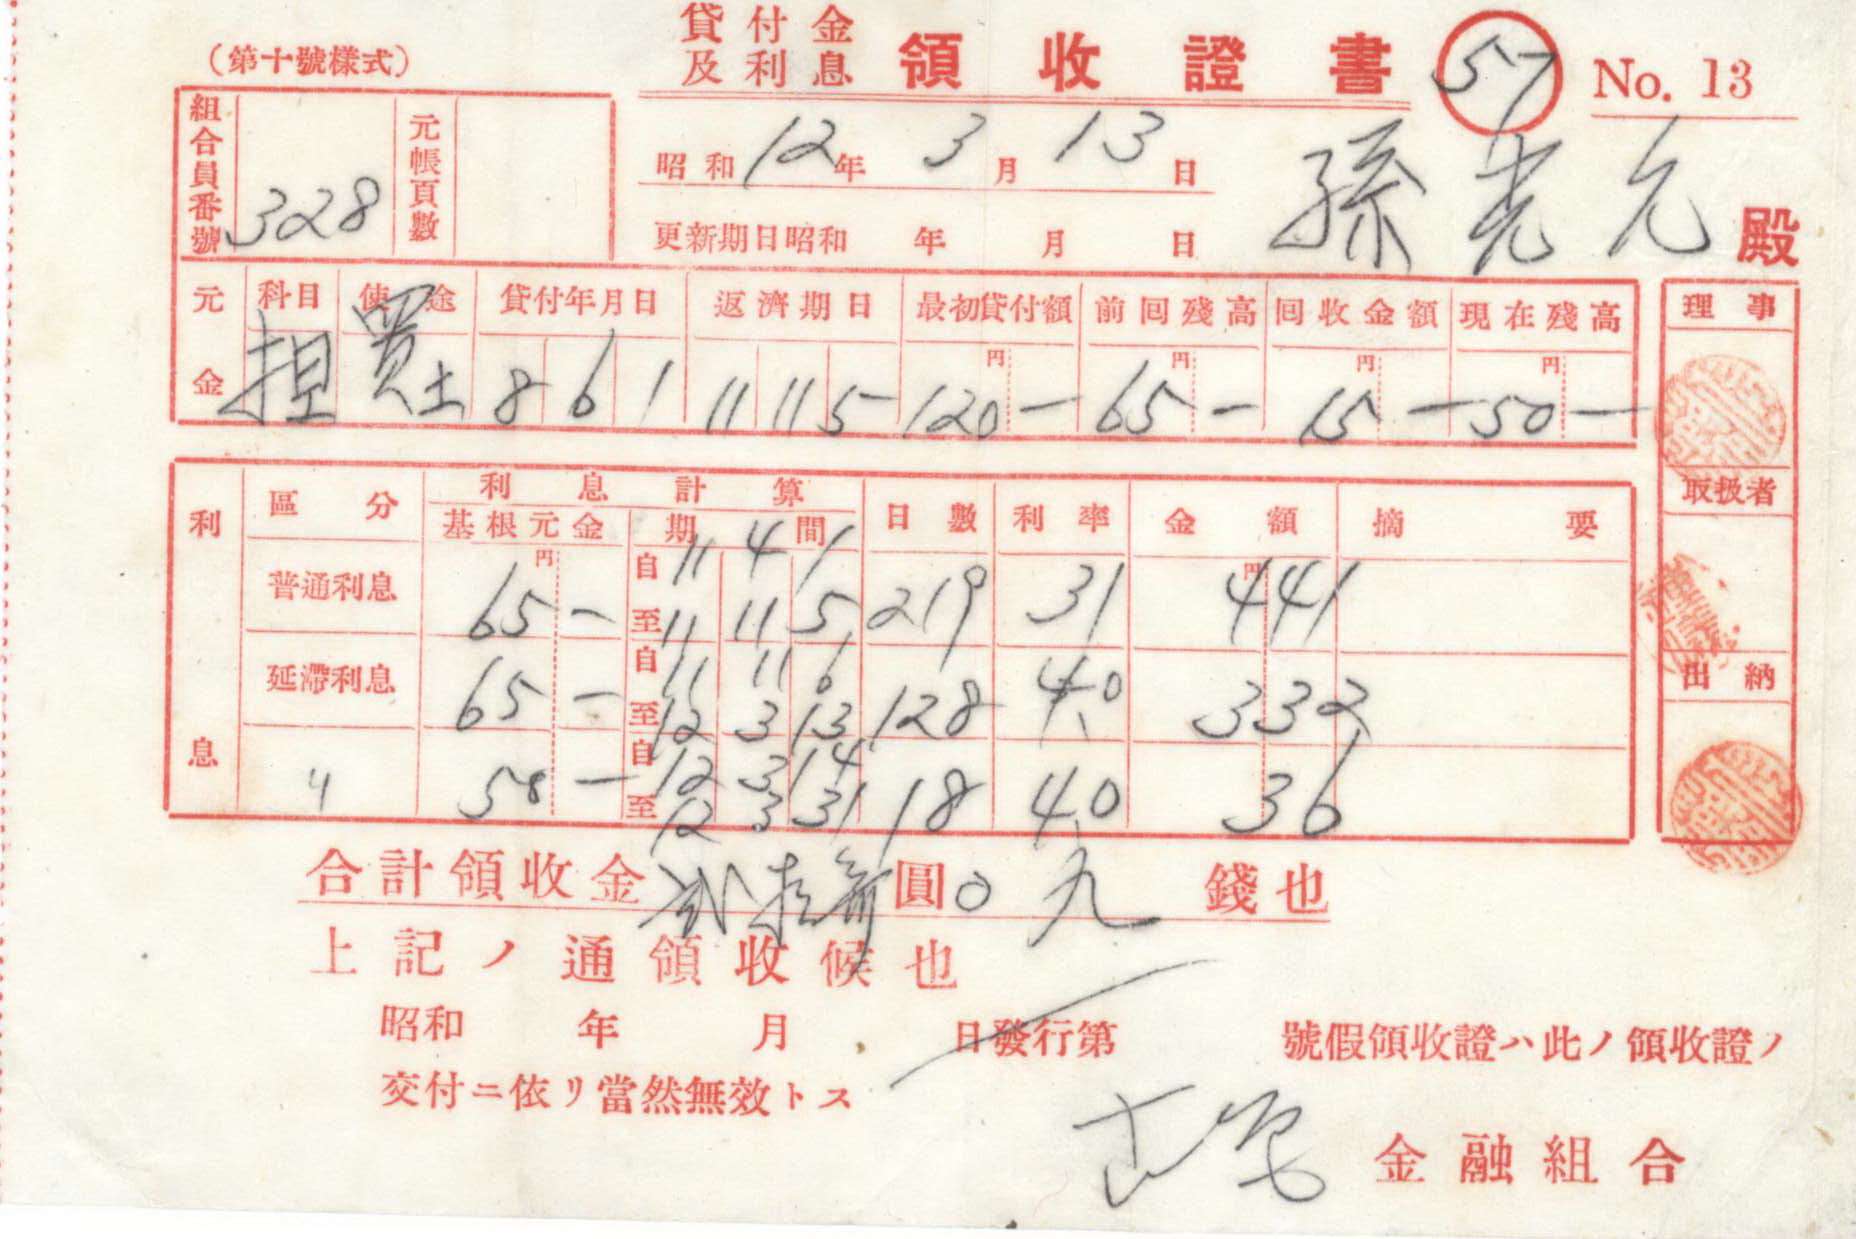 (第十號樣式)
貸付金
及利息 領收證書 57 No. 13
組合員番號 328 元帳頁數
昭和 12 年 3 月 13 日
更新期日昭和 年 月 日
孫 光 允 殿
元金 科目 使途 貸付年月日 返濟期日 最初貸付額 前回殘高 回收金額 現在殘高
円 円 円 円
担 買土 8 6 1 11 11 5 120 — 65 — 15 — 50 —
理事
取扱者
出納
利息 區分 利息計算 日數 利率 金額 摘要
基根元金 期間
円 円
普通利息 65 — 自 11 4 1 219 31 441
至 11 11 5
延滯利息 65 — 自 11 11 6 128 40 332
至 12 3 13
〃 50 — 自 12 3 14 18 40 36
至 12 3 31
合計領收金 貳拾參 圓 0 九 錢也
上記ノ通領收候也
昭和 年 月 日發行第 號假領收證ハ此ノ領收證ノ
交付ニ依リ當然無效トス
金融組合